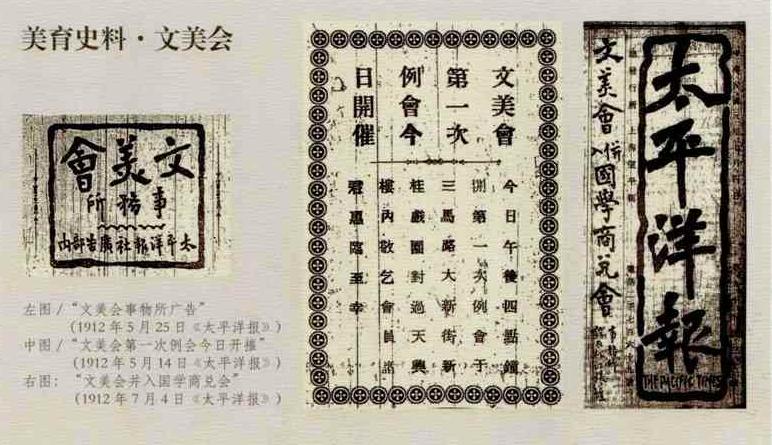 美育史料·文美会
文美會
事務所
太平洋報社廣告部内
左图/“文美会事物所广告”
(1912年5月25日《太平洋报》)
中图/“文美会第一次例会今日开摧”
(1912年5月14日《太平洋报》)
右图：“文美会并入国学商兑会”
(1912年7月4日《太平洋报》)
文美會
第一次
例會今
日開催
今日午後四點鐘
開第一次例會于
三馬路大新街新
桂戲園對過天興
樓内敬乞會員諸
君惠臨至幸
太平洋報
THE PACIFIC TIMES
文美會併入國學商兌會